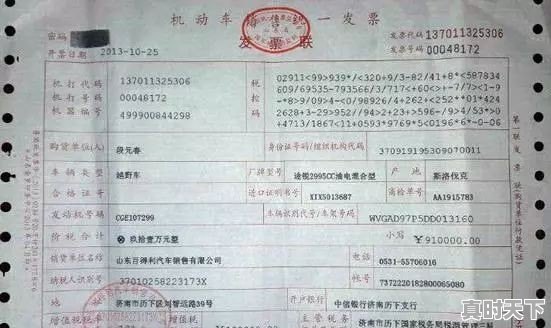 机动车销售统一发票
发票联
密码
发票代码 137011325306
发票号码 00048172
开票日期 2013-10-25
机打代码 137011325306
机打号码 00048172
机器编号 499900844298
税控码
02911<99>939*/<320+9/3-82/41+8*<587834
609/69535-793566/3/717<+60<>+-7/7><1-9
-*8>9/09>4-<0/98926/4+262+<252**01*424
2628+3-29>952//+94>2<*3*23*5894/53/>0
+4713/1867<11+0593+9765*5<0196*6*-0-06
购货单位(人) 段元春 身份证号码/组织机构代码 370919195309070011
车辆类型 越野车 厂牌型号 途锐2995CC油电混合型 产地 斯洛伐克
合格证号 进口证明书号 XIX5013687 商检单号 AA1915783
发动机号码 CGE107299 车辆识别代号/车架号码 WVGAD97P5DD013160
价税合计 ⊗玖拾壹万元整 小写 ¥910000.00
销货单位名称 山东百得利汽车销售有限公司 电话 0531-55706016
纳税人识别号 37010258223173X 账号 7372220182800065080
地址 济南市历下区刘智远路39号 开户银行 中信银行济南历下支行
增值税税率 增值税 税额
济南市历下区国家税务局
第一联 发票联
真时天下